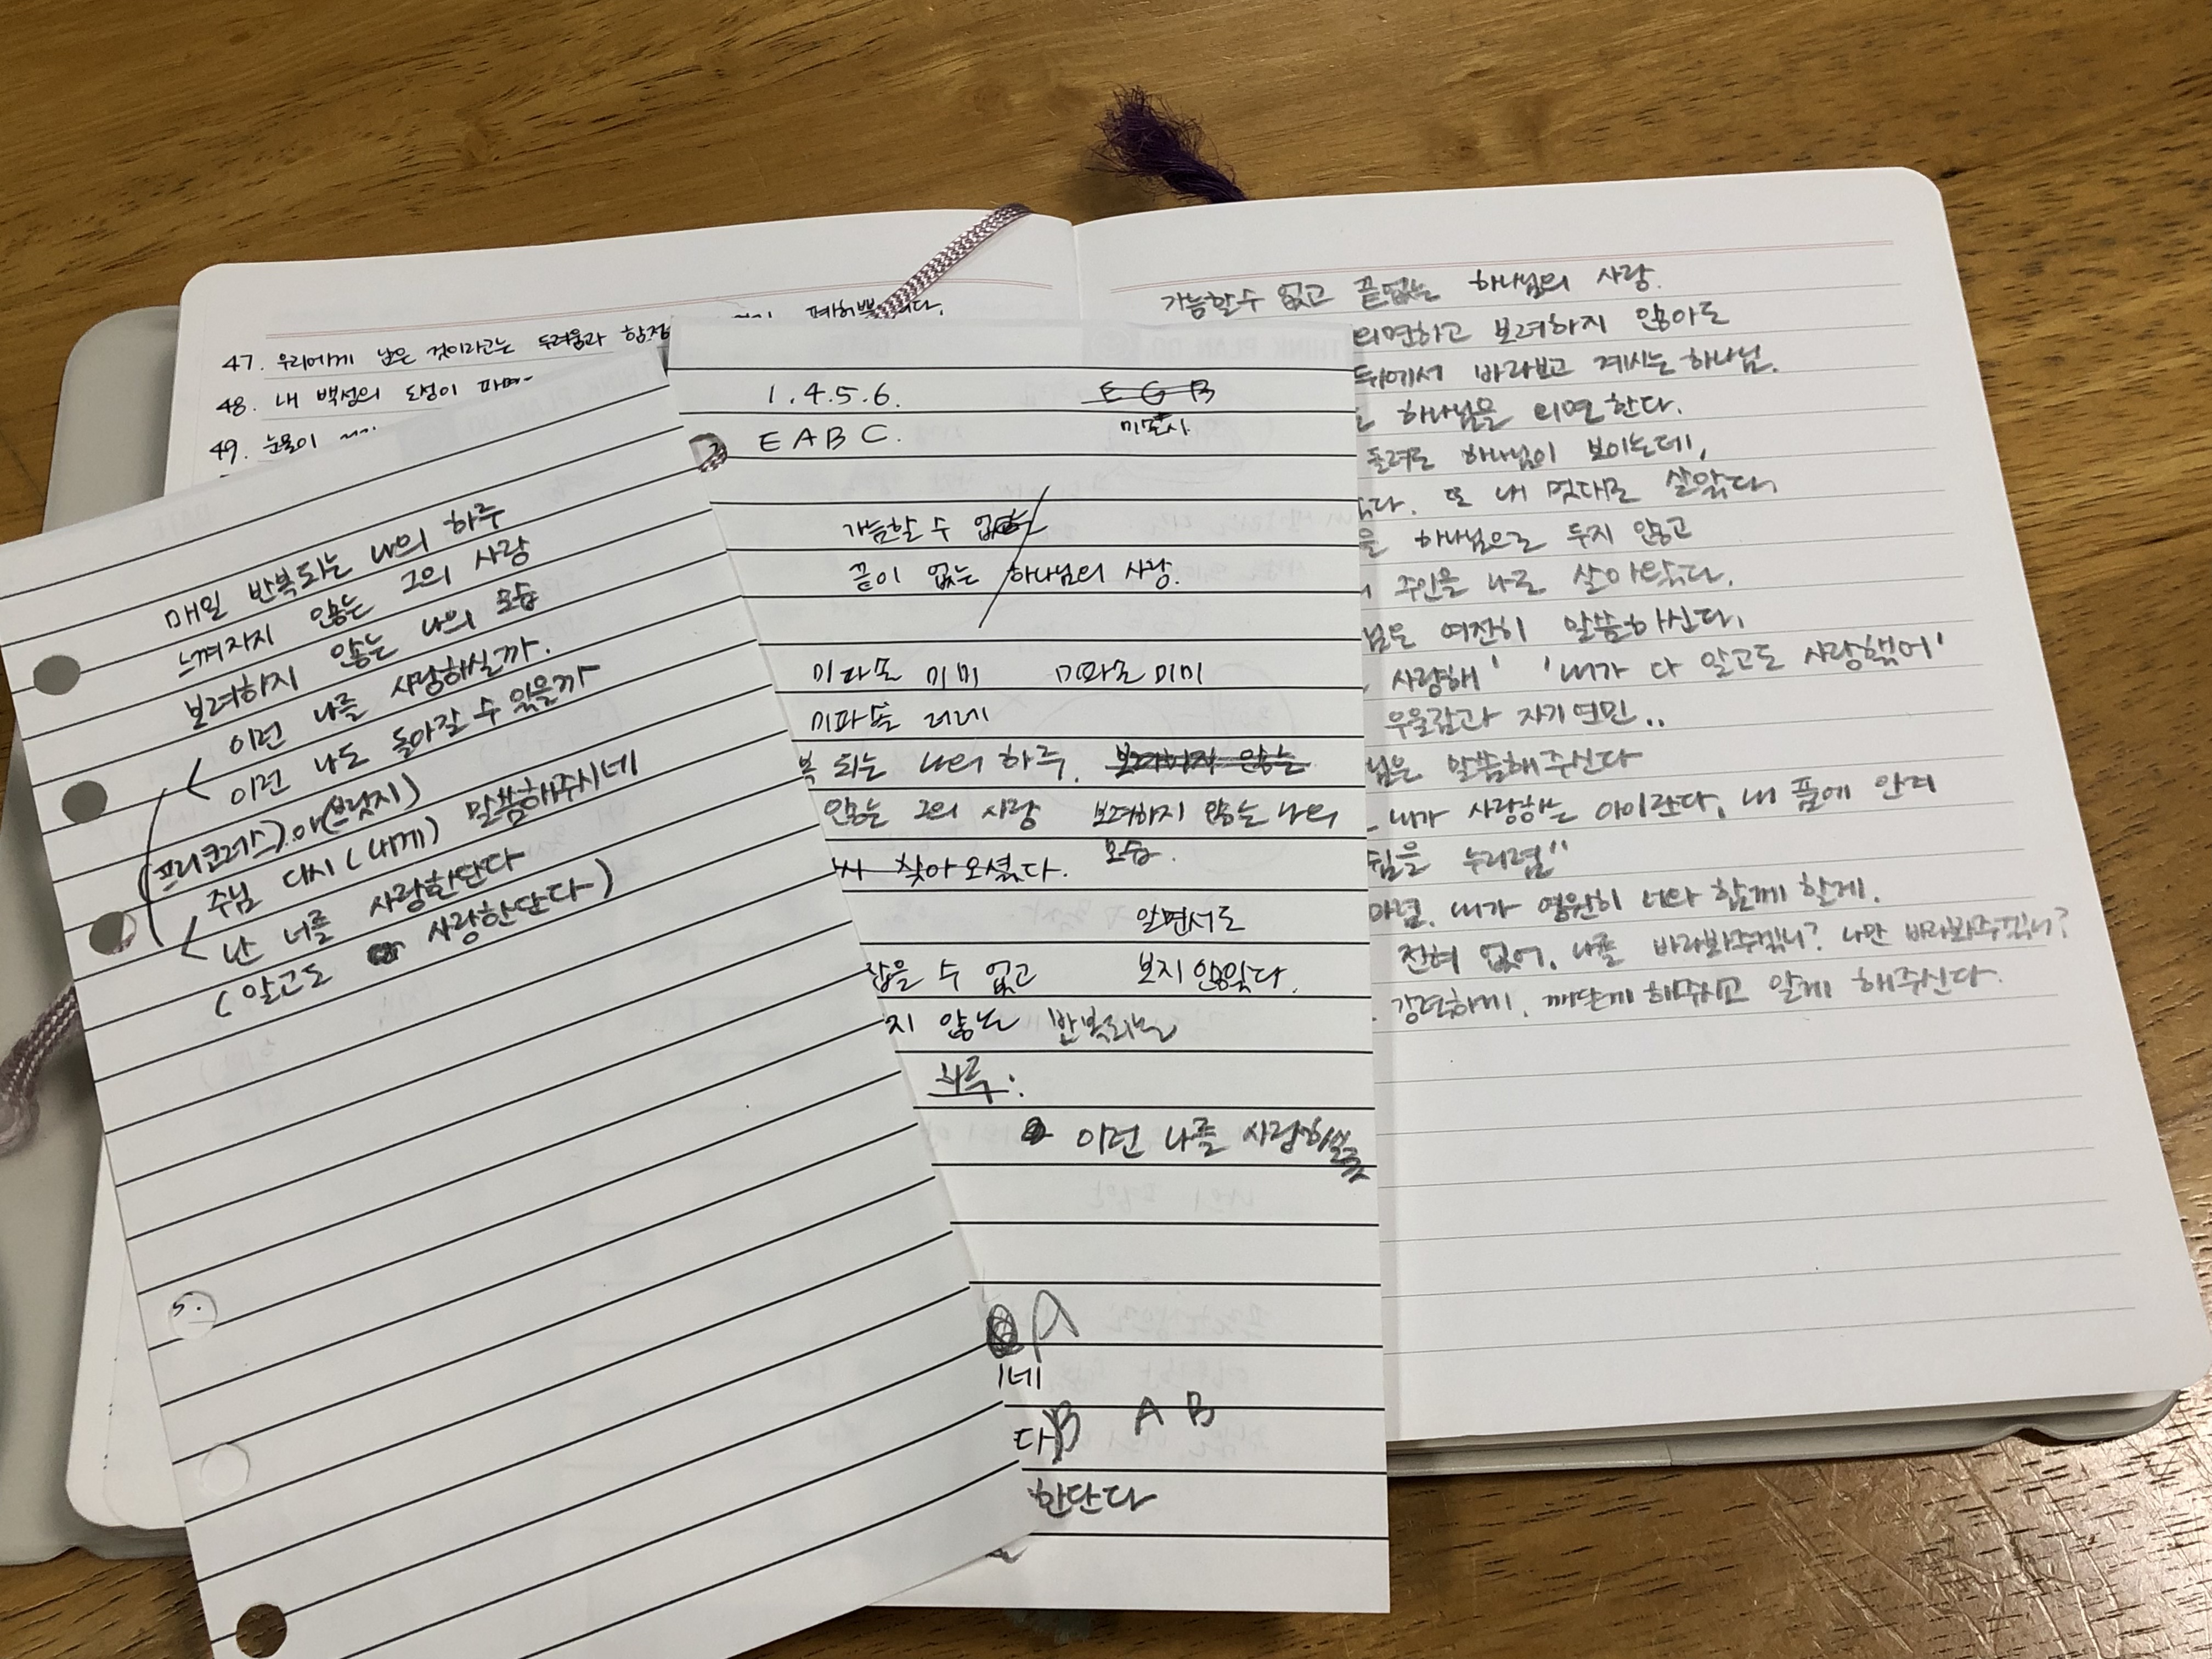 47. 우리에게 남은 것이라고는 두려움과 함정
48. 내 백성의 도성이
49. 눈물이
매일 반복되는 나의 하루
느껴지지 않는 그의 사랑
보려하지 않는 나의 모습
이런 나를 사랑하실까.
이런 나도 돌아갈 수 있을까
(프리코러스).아(브릿지)
주님 다시 (내게) 말씀해주시네
난 너를 사랑한단다
(알고도 사랑한단다)
5.
1.4.5.6.
E A B C.
E G B
미솔시
가늠할 수 없는
끝이 없는 하나님의 사랑.
미파솔 미미 미파솔 미미
미파솔 레레
복 되는 나의 하루. 보려하지 않는
않는 그의 사랑 보려하지 않는 나의
모습.
찾아오셨다.
알면서도
잡을 수 없고 보지 않았다.
지 않는 반복되는
하루.
이런 나를
A
네
다 B A B
한단다
가늠할수 없고 끝없는 하나님의 사랑.
외면하고 보려하지 않아도
뒤에서 바라보고 계시는 하나님.
하나님을 외면한다.
돌려도 하나님이 보이는데,
다. 또 내 멋대로 살았다.
을 하나님으로 두지 않고
주인을 나로 살아왔다.
님은 여전히 말씀하신다.
사랑해' '내가 다 알고도 사랑했어'
우울감과 자기연민..
님은 말씀해주신다
내가 사랑하는 아이란다, 내 품에 안겨
쉼을 누리렴"
마렴. 내가 영원히 너와 함께 할게.
전혀 없어. 나를 바라봐주겠니? 나만 바라봐주겠니?
강력하게. 깨닫게 해주시고 알게 해주신다.